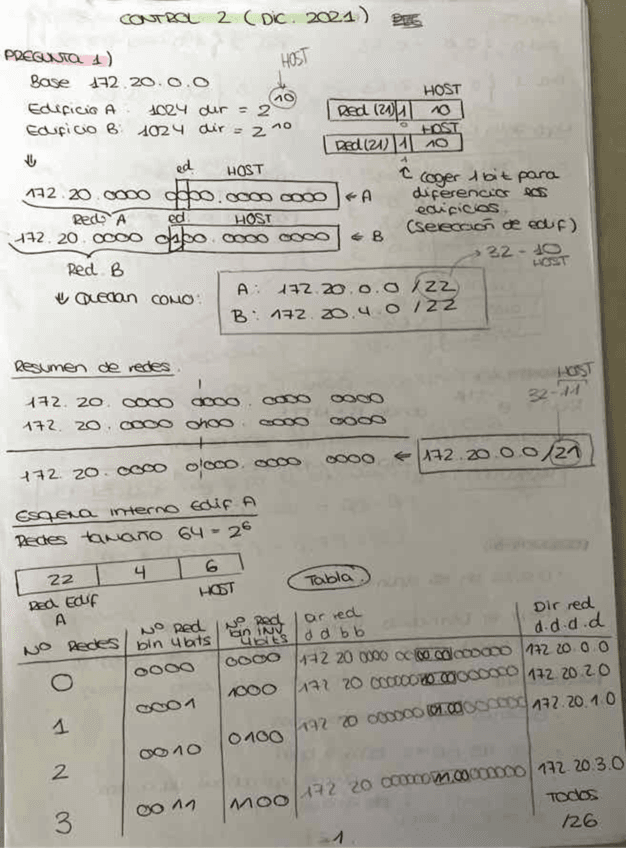 CONTROL 2 (DIC. 2021)
PREGUNTA 1)
HOST
Base 172.20.0.0
Edificio A: 1024 dir = 2^10
HOST
Red (21) 1 10
Edificio B: 1024 dir = 2^10
0 HOST
Red (21) 1 10
1
ed. HOST
172.20.0000 0000.0000 0000 ← A
↑ coger 1 bit para
diferenciar los
edificios.
(selección de edif)
Red A ed. HOST
172.20.0000 0100.0000 0000 ← B
Red B
32 - 10
HOST
⇓ Quedan como:
A: 172.20.0.0 /22
B: 172.20.4.0 /22
Resumen de redes.
HOST
32-11
172.20.0000 0000.0000 0000
172.20.0000 0100.0000 0000
172.20.0000 0000.0000 0000 ← 172.20.0.0/21
Esquema interno Edif. A
Redes tamaño 64 = 2^6
22 4 6
Red Edif HOST
A
Tabla
Nº Redes | Nº Red bin 4bits | Nº Red bin INV 4bits | Dir red d d b b | Dir red d.d.d.d
0 | 0000 | 0000 | 172 20 0000 00 00 00 000000 | 172 20.0.0
1 | 0001 | 1000 | 172 20 000000 10 00 000000 | 172.20.2.0
2 | 0010 | 0100 | 172 20 000000 01.00 000000 | 172.20.1.0
3 | 0011 | 1100 | 172 20 000000 11.00 000000 | 172.20.3.0
Todos
/26
-1.